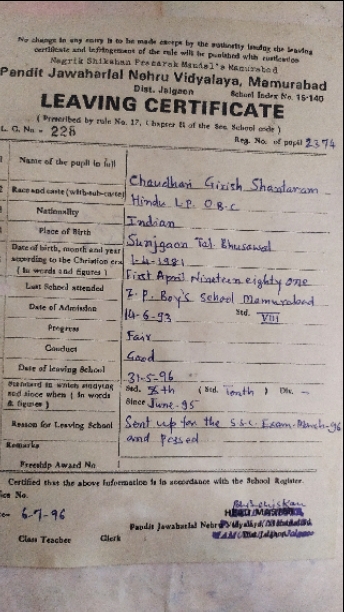 No change in any entry is to be made except by the authority issuing the leaving
certificate and infringement of the rule will be punished with
Nagrik Shikshan Prasarak Mandal's Mamurabad
Pandit Jawaharlal Nehru Vidyalaya, Mamurabad
Dist. Jalgaon School Index No. 15-140
LEAVING CERTIFICATE
( Prescribed by rule No. 17, Chapter II of the Sec. School code )
L. C. No - 228 Reg. No. of pupil 2374
1 Name of the pupil in full Chaudhari Girish Shantaram
2 Race and caste (with sub-caste) Hindu L.P. O.B.C
Nationality Indian
Place of Birth Sunjgaon Tal. Bhusawal
Date of birth, month and year 1-4-1981
according to the Christian era First April Nineteen eighty one
( In words and figures )
Last School attended Z. P. Boy's School Mamurabad
Date of Admission 14-6-93 Std. VIII
Progress Fair
Conduct Good
Date of leaving School 31-5-96
Standard in which studying Std. Xth ( Std. Tenth ) Div. -
and since when ( In words Since June-95
& figures )
Reason for Leaving School Sent up for the S.S.C. Exam. March-96
Remarks and passed
Freeship Award No
Certified that the above Information is in accordance with the School Register.
ice No.
te- 6-7-96
Pandit Jawaharlal Nehru
Class Teacher Clerk